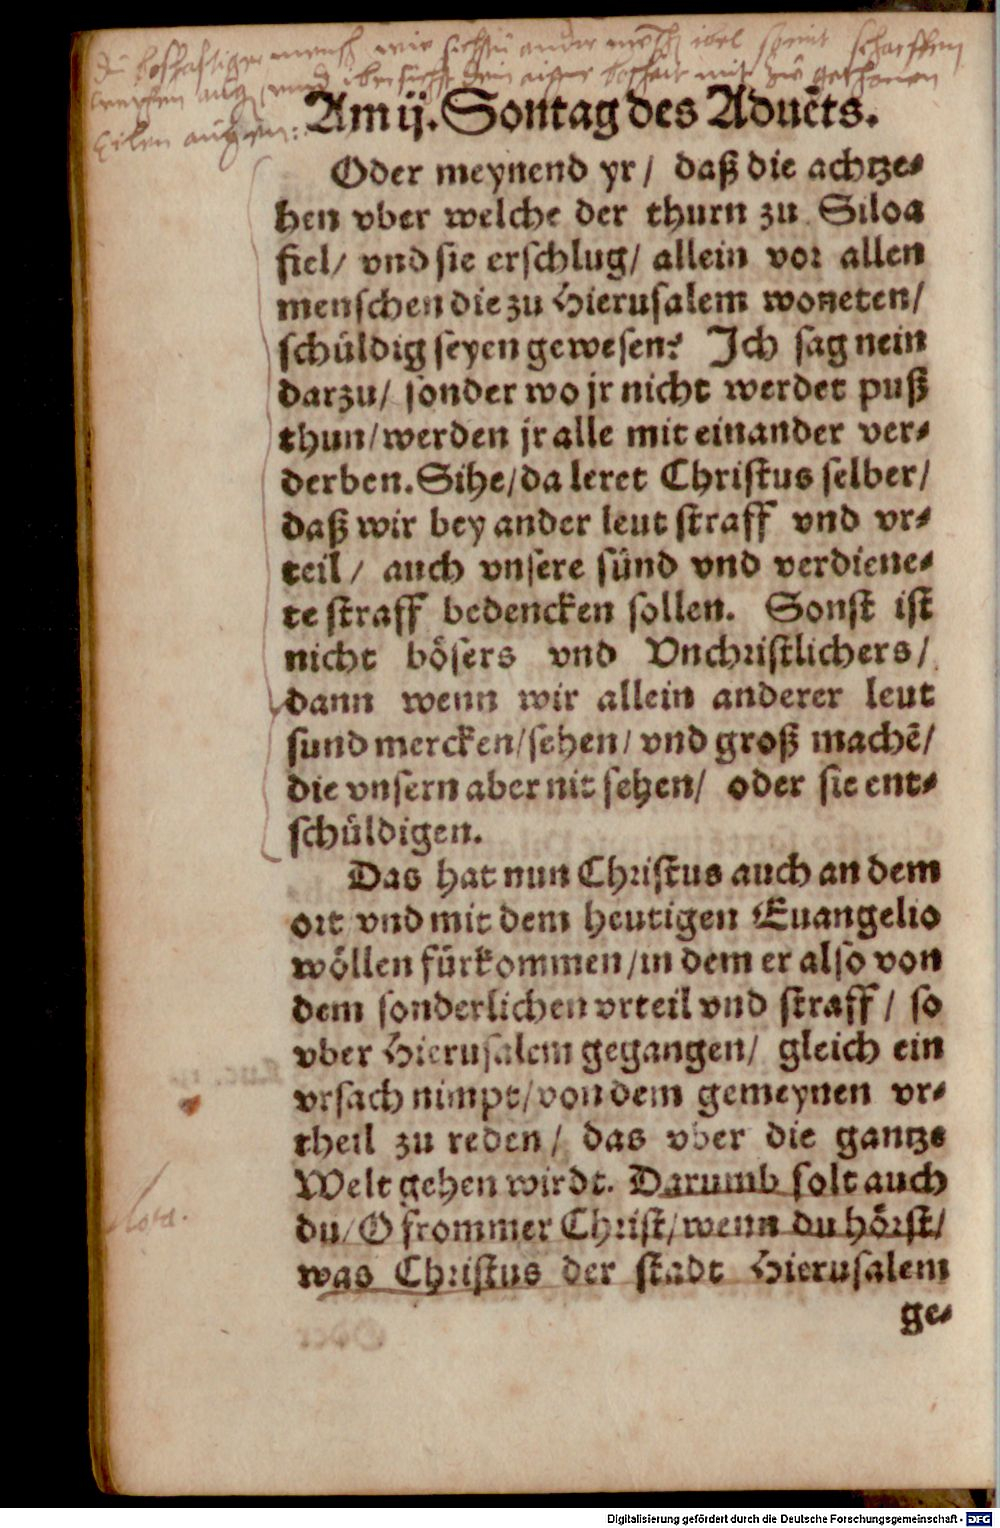 dü boshaftiger mensch wie sichstu ander
augen
Am ij. Sontag des Aduẽts.
Oder meynend yr / daß die achtze⸗
hen vber welche der thurn zu Siloa
fiel / vnd sie erschlug / allein vor allen
menschen die zu Hierusalem woneten /
schüldig seyen gewesen? Ich sag nein
darzu / sonder wo jr nicht werdet puß
thun / werden jr alle mit einander ver⸗
derben. Sihe / da leret Christus selber /
daß wir bey ander leut straff vnd vr⸗
teil / auch vnsere sünd vnd verdiene⸗
te straff bedencken sollen. Sonst ist
nicht bösers vnd Vnchristlichers /
dann wenn wir allein anderer leut
sund mercken / sehen / vnd groß machẽ /
die vnsern aber nit sehen / oder sie ent⸗
schüldigen.
Das hat nun Christus auch an dem
ort vnd mit dem heutigen Euangelio
wöllen fürkommen / in dem er also von
dem sonderlichen vrteil vnd straff / so
vber Hierusalem gegangen / gleich ein
vrsach nimpt / von dem gemeynen vr⸗
theil zu reden / das vber die gantze
Welt gehen wirdt. Darumb solt auch
du / O frommer Christ / wenn du hörst /
was Christus der stadt Hierusalem
ge⸗
Digitalisierung gefördert durch die Deutsche Forschungsgemeinschaft - DFG